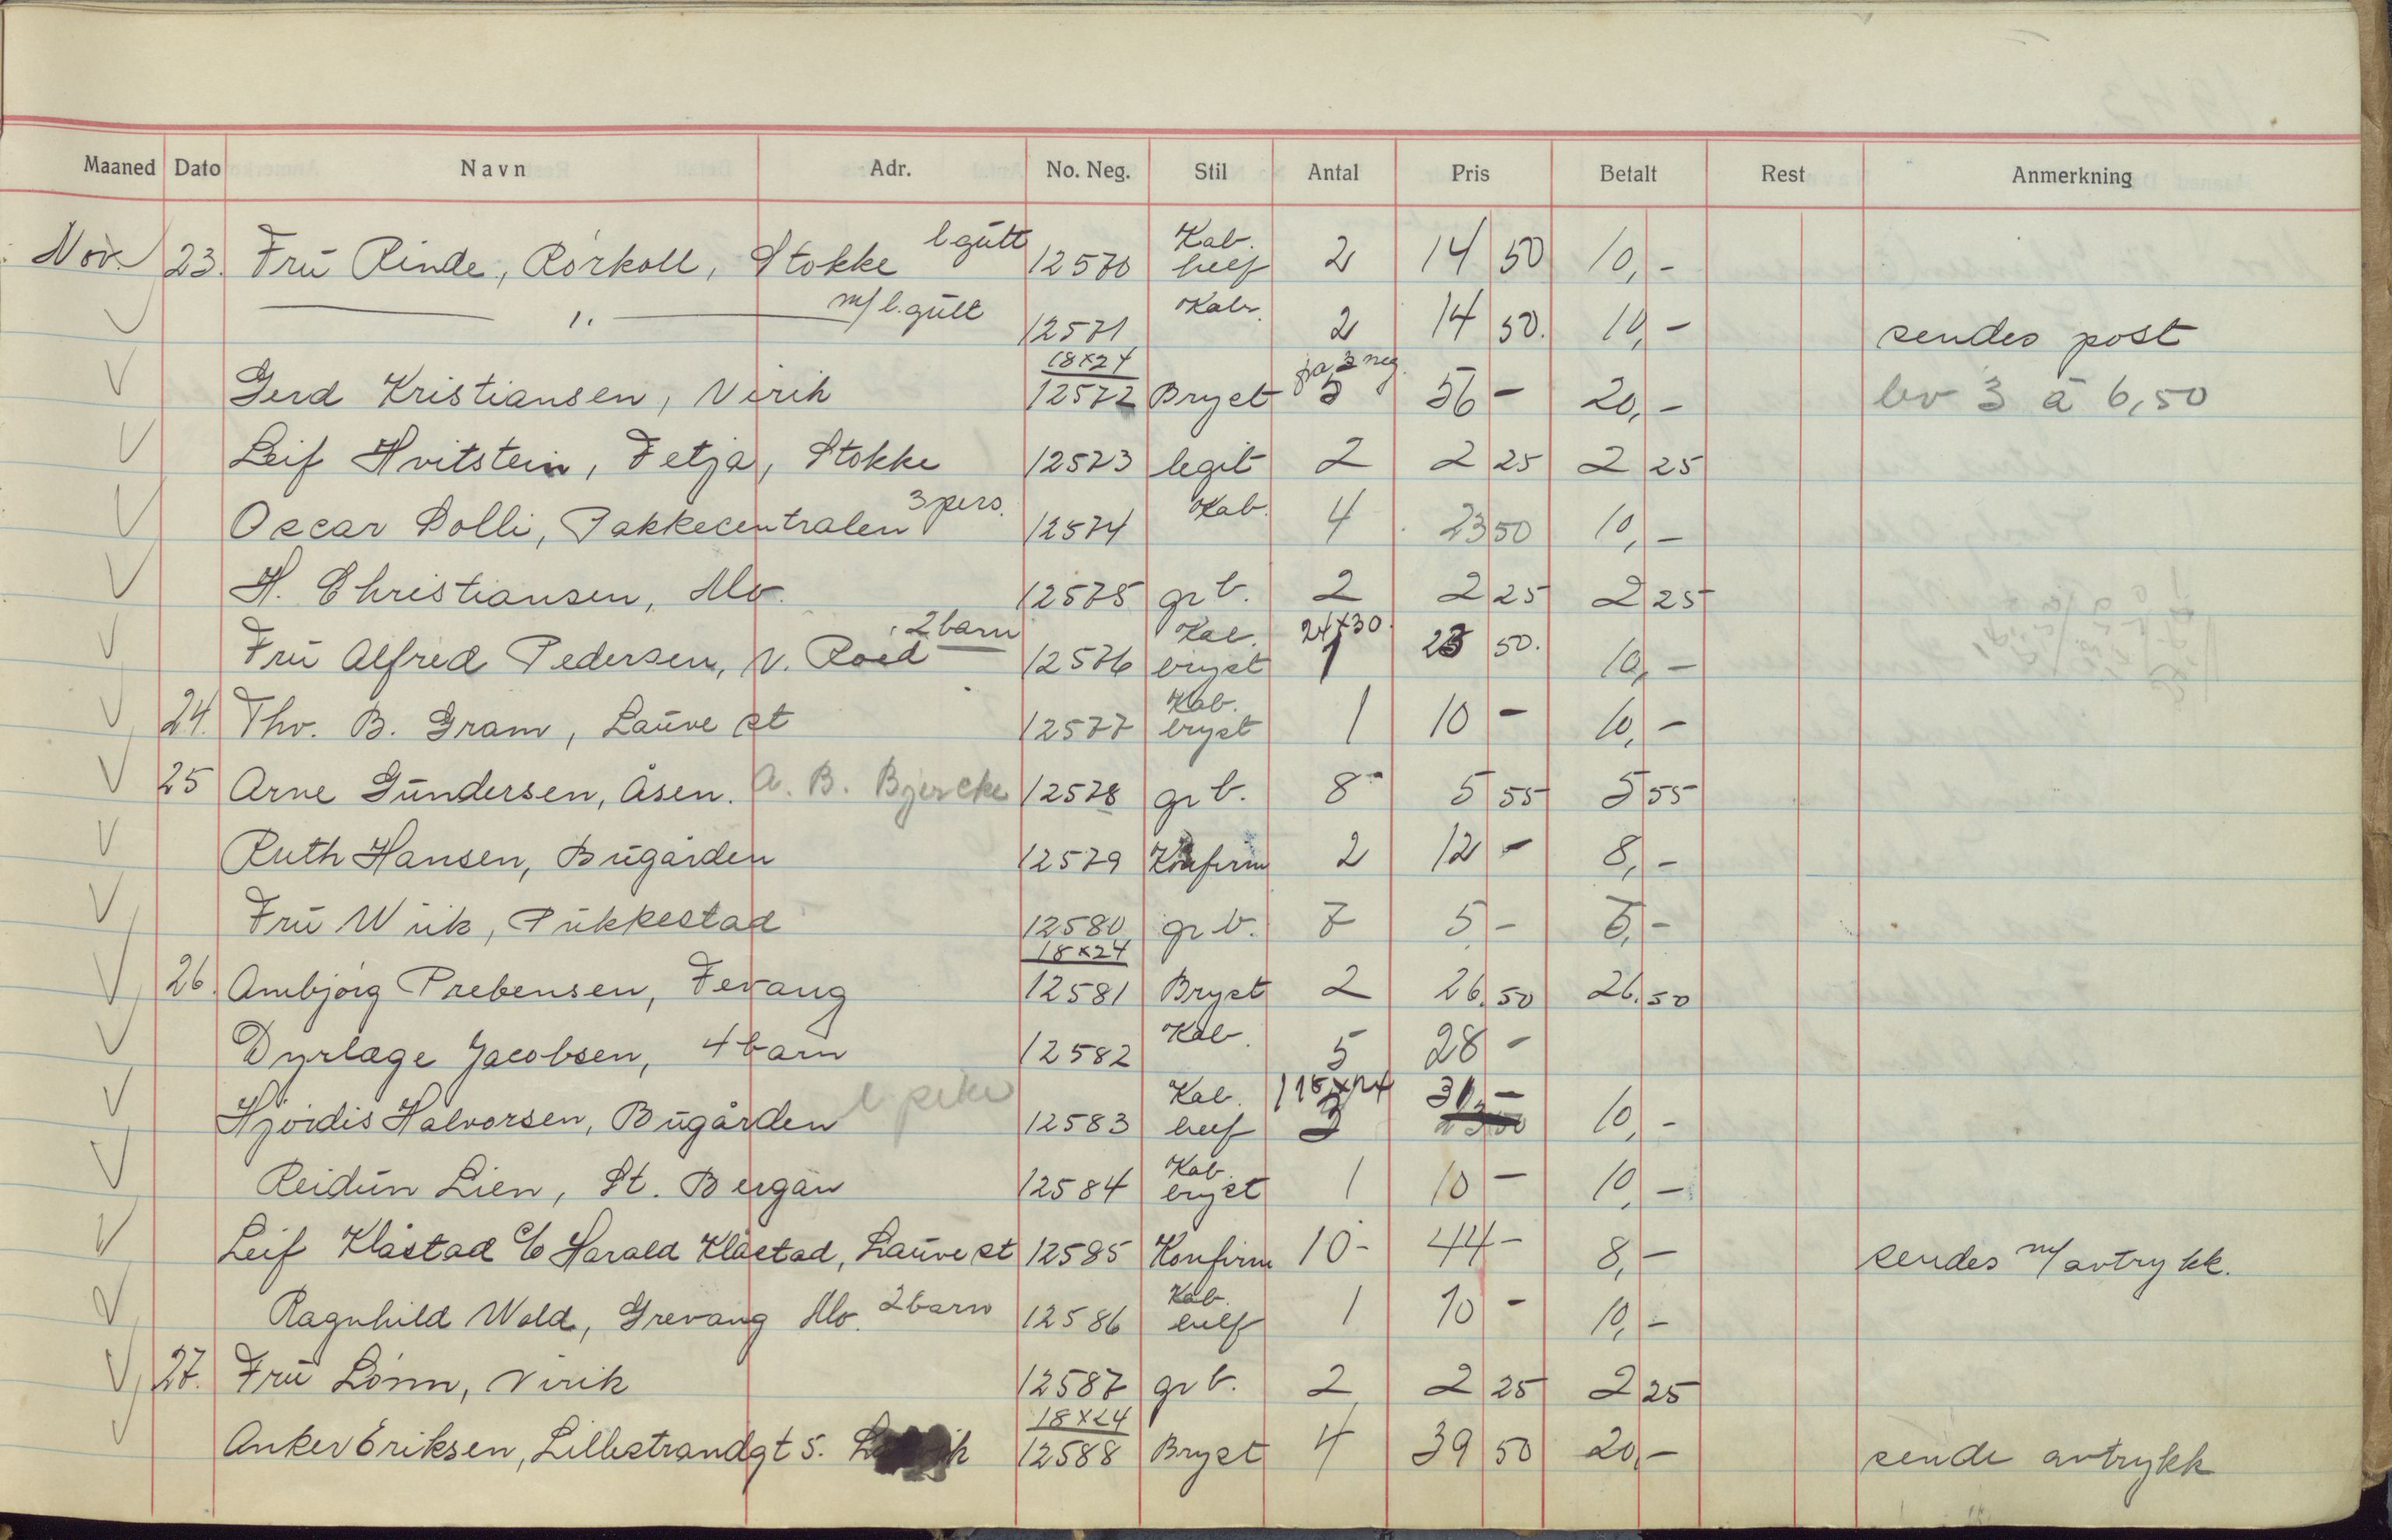 Maaned Dato Navn Adr. No. Neg. Stil Antal Pris Betalt Rest Anmerkning
Nov. 23. Frū Rinde, Rörkoll, Stokke l.gūtt 12570 Kab. helf 2 14 50 10,-
" m/ l.gūtt 12571 Kab. 2 14 50. 10,- sendes post
Gerd Kristiansen, Virik 18x24 12572 Bryst pa 2 neg. 5 56 - 20,- lev 3 a 6,50
Leif Hvitstein, Fetja, Stokke 12573 legit 2 2 25 2 25
Oscar Dolli, Pakkecentralen 3 pers. 12574 Kab. 4 23 50 10,-
H. Christiansen, Mo. 12575 gr b. 2 2 25 2 25
Frū Alfred Pedersen, v. Roed 2 barn 12576 Kab. bryst 24x30. 1 23 50. 10,-
24. Thv. B. Gram, Laūve st 12577 Kab. bryst 1 10 - 10,-
25 Arne Gūndersen, Åsen. A. B. Bjercke 12578 gr b. 8- 5 55 5 55
Rūth Hansen, Būgården 12579 Konfirm 2 12 - 8,-
Frū Wiik, Pūkkestad 12580 gr b. 7 5,- 5,-
26. Ambjörg Prebensen, Fevang 18x24 12581 Bryst 2 26,50 26.50
Dyrlæge Jacobsen, 4 barn 12582 Kab. 5 28 -
Hjördis Halvorsen, Būgården l. pike 12583 Kab. helf 1 18x24 3 31,- 10,-
Reidūn Lien, St. Bergan 12584 Kab. bryst 1 10 - 10,-
Leif Klåstad c/o Harald Klåstad, Laūve st 12585 Konfirm 10- 44- 8,- sendes m/ avtrykk.
Ragnhild Wold, Grevang Mo. 2 barn 12586 Kab. helf 1 10 - 10,-
27. Frū Lönn, Virik 12587 gr b. 2 2 25 2 25
Anker Eriksen, Lillestrandgt 5. 18x24 12588 Bryst 4 39 50 20,- sende avtrykk